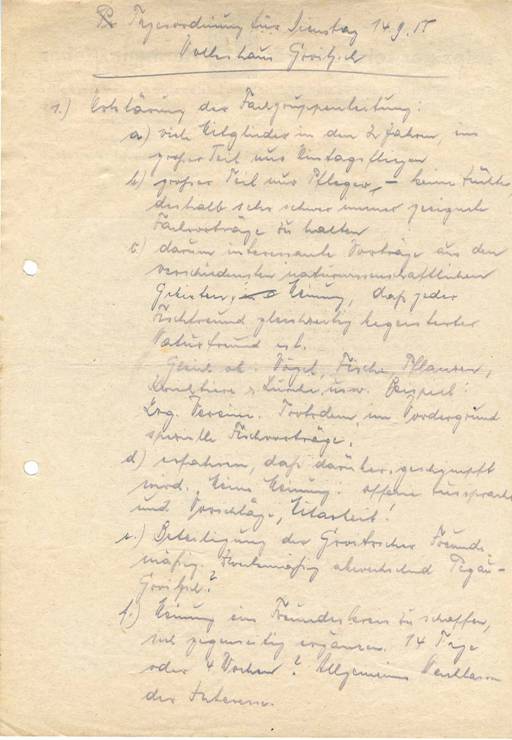 Tagesordnung für Dienstag 14.9.55
Volkshaus Groitzsch
1.) Erklärung der Fachgruppenleitung:
a) viele Mitglieder in den 2 Jahren, ein
großer Teil nur Eintagsfliegen
b) großer Teil nur Pfleger, – keine Züchter
deshalb sehr schwer immer geeignete
Fachvorträge zu halten
c) darum interessante Vorträge aus den
verschiedensten naturwissenschaftlichen
Gebieten, Meinung, daß jeder
Fischfreund gleichzeitig begeisterter
Naturfreund ist.
Gleich ob Vögel, Fische, Pflanzen,
Hunde, usw. Beispiel:
Lzg. Vereine. Trotzdem im Vordergrund
spezielle Fischvorträge.
d) erfahren, daß darüber geschimpft
wird. Meine Meinung: offene Aussprache
und Vorschläge, Mitarbeit!
e.) Beteiligung der Groitzscher Freunde
mäßig. abwechselnd Pegau-
Groitzsch?
f.) Meinung ein Freundeskreis zu schaffen,
sich gegenseitig ergänzen. 14 Tage
oder 4 Wochen? Allgemeines
der Interessen.